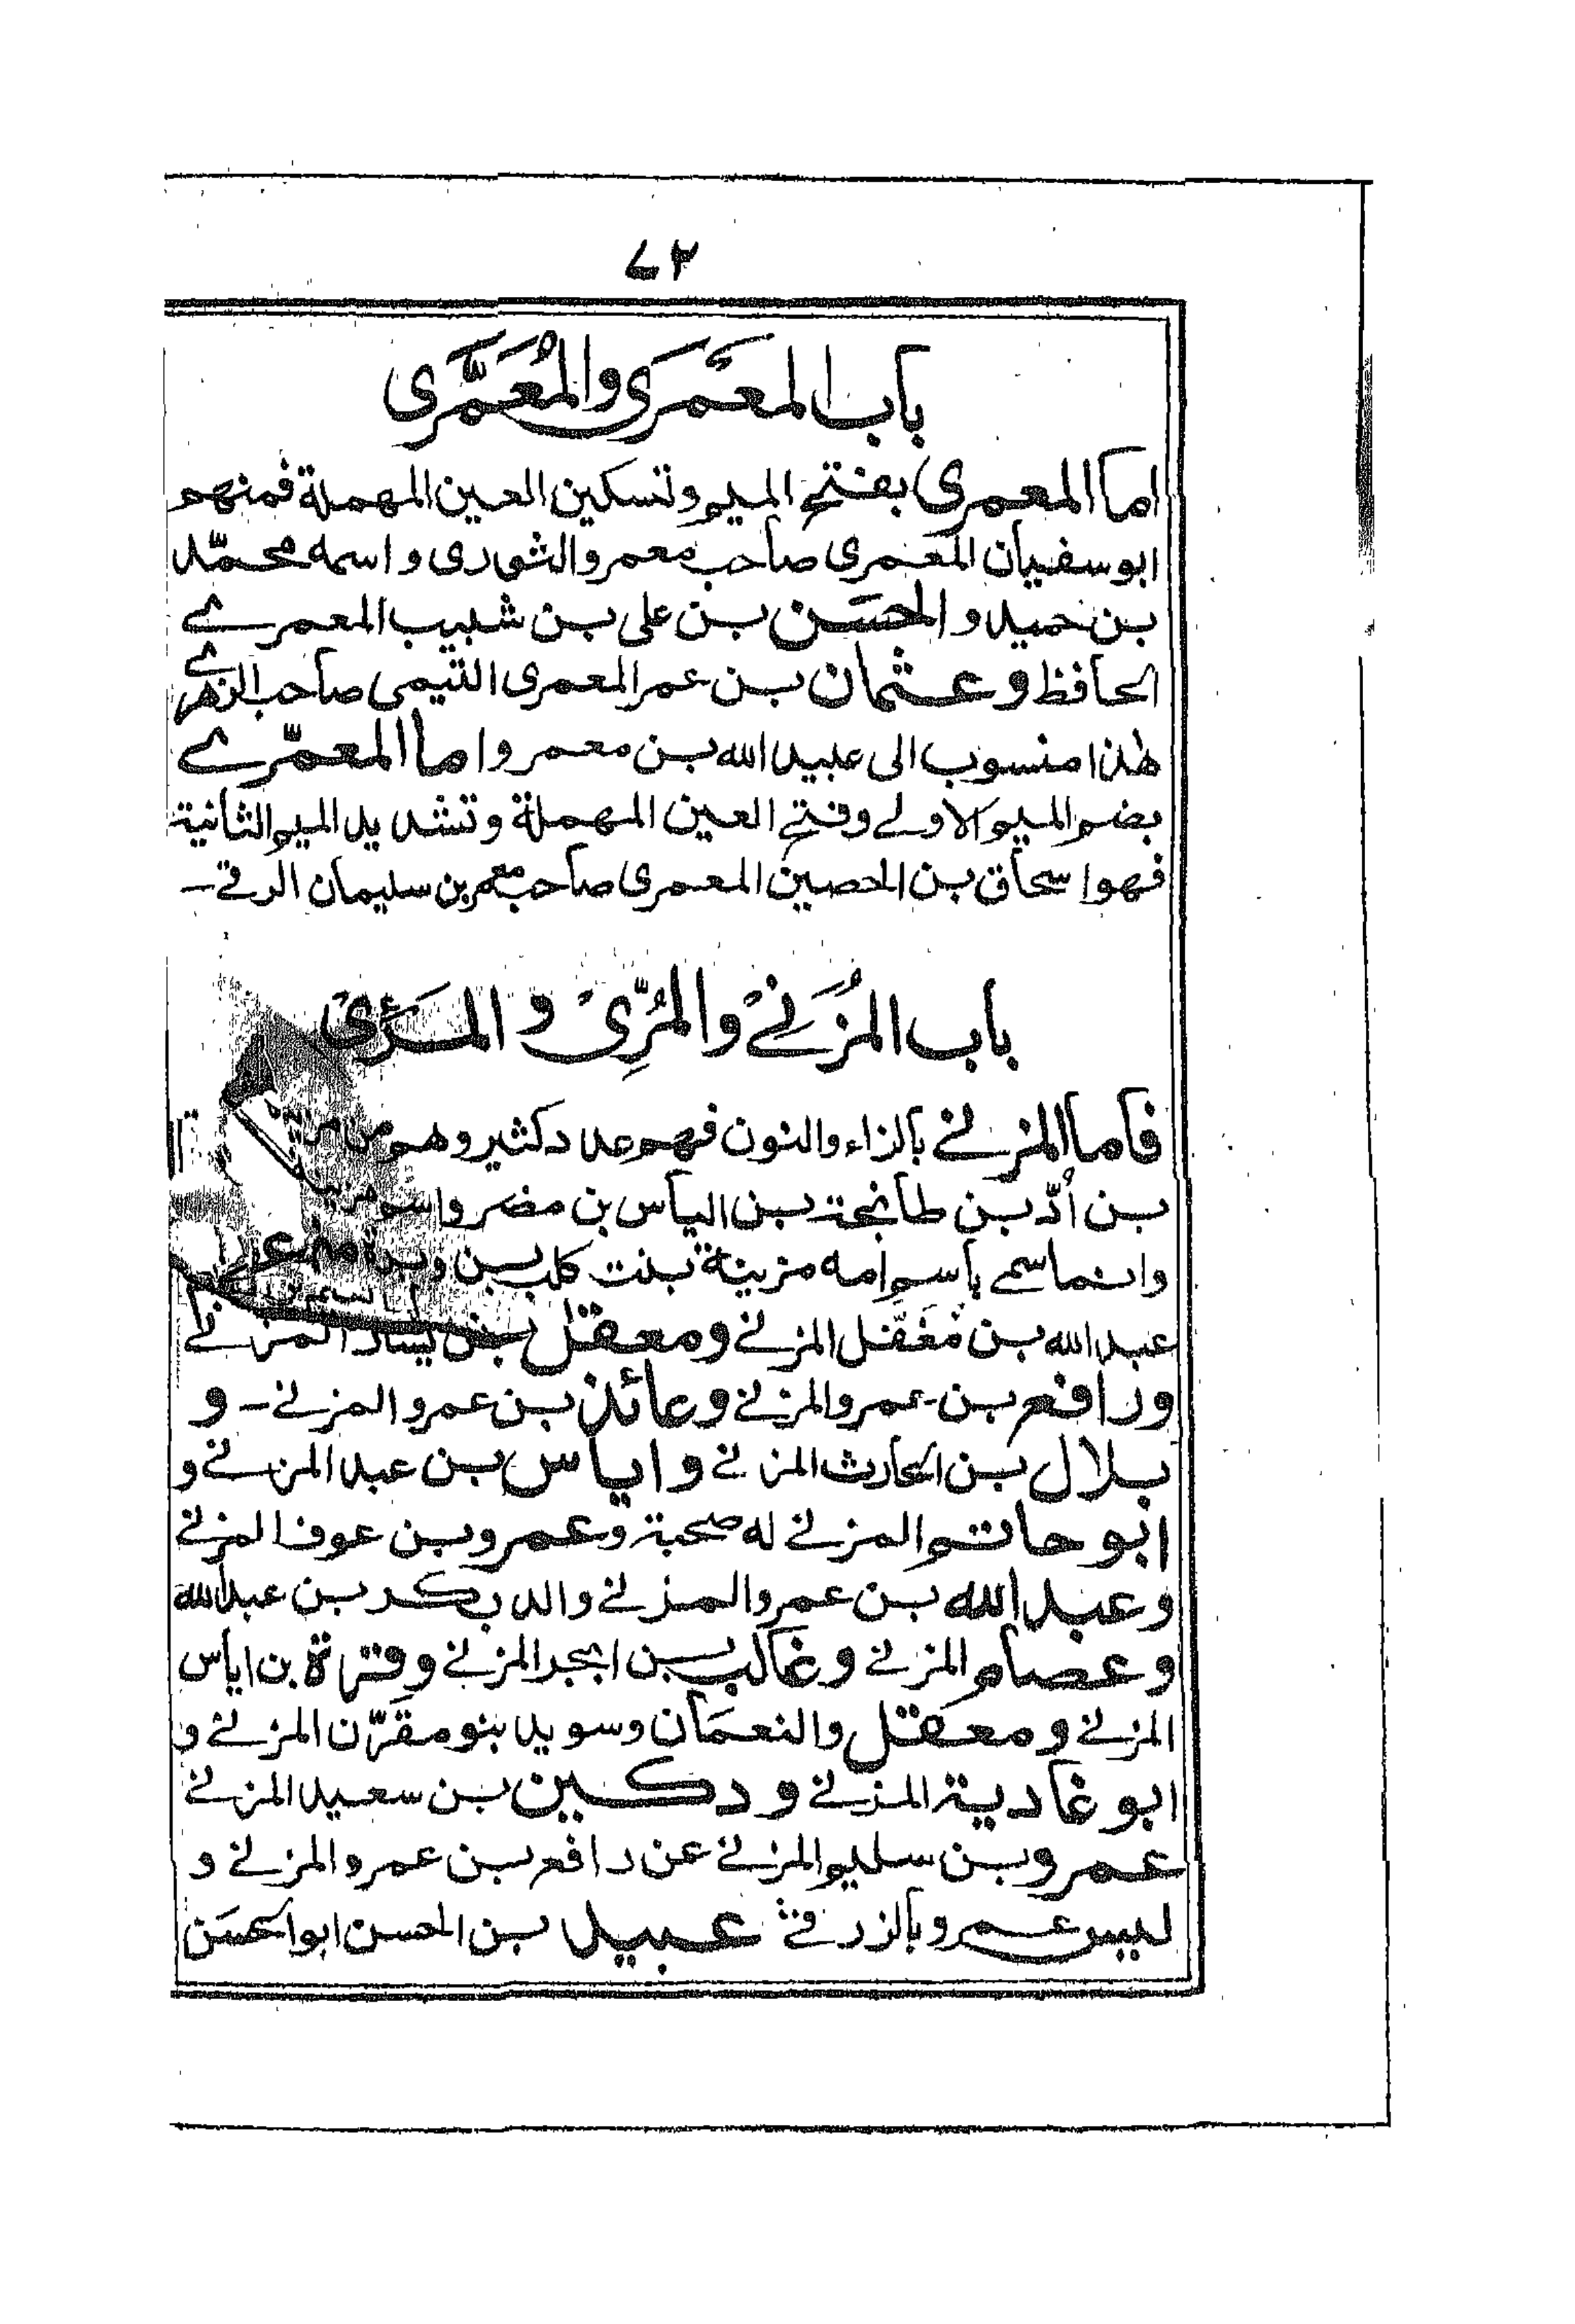 ٧٣
باب المعمرى والمُعَمَّرى
اما المعمرى بفتح الميم وتسكين العين المهملة فمنهم
ابو سفيان المعمرى صاحب معمر والثورى واسمه محمّد
بن حميد والحسن بن على بن شبيب المعمرے
الحافظ وعثمان بن عمر المعمرى التيمى صاحب الزهرے
هذا منسوب الى عبيد الله بن معمر واما المعمّرے
بضم الميم الاولے وفتح العين المهملة وتشديد الميم الثانية
فهو اسحاق بن الحصين المعمرى صاحب معمر بن سليمان الرقے -
باب المُزَنےْ والمُرِّىْ و المَرَئىْ
فاما المزنے بالزاء والنون فهم عدد كثير وهم من
بن أدّ بن طابخة بن الياس بن مضر واسم
وانما سمے باسم امه مزينة بنت كلب بن وبرة منهم
عبد الله بن مُغَفّل المزنے ومعقل بن يسار المزنے
ورافع بن عمرو المزنے وعائذ بن عمرو المزنے - و
بلال بن الحارث المزنے واياس بن عبد المزنے و
ابو حاتم المزنے له صحبة وعمرو بن عوف المزنے
وعبد الله بن عمرو المزنے والد بكر بن عبد الله
وعصام المزنے وغالب بن ابجر المزنے وقرة بن اياس
المزنے ومعقل والنعمان وسويد بنو مقرّن المزنے و
ابو غادية المزنے ودكين بن سعيد المزنے
عمرو بن سليم المزنے عن رافع بن عمرو المزنے و
ليس عمرو بالزرقے عبيد بن الحسن ابو الحسن